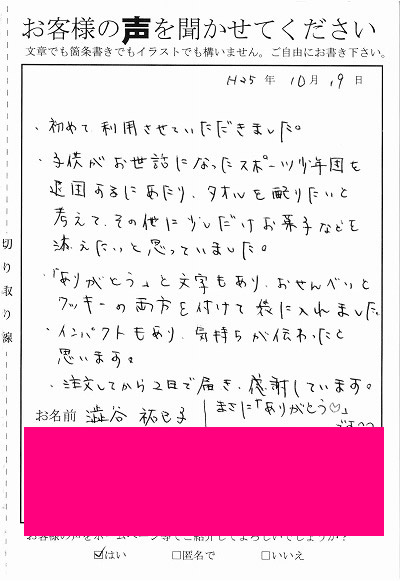 お客様の声を聞かせてください
文章でも箇条書きでもイラストでも構いません。ご自由にお書き下さい。
H25 年 10 月 19 日
・初めて利用させていただきました。
・子供がお世話になったスポーツ少年団を
退団するにあたり、タオルを配りたいと
考えて、その他に少しだけお菓子などを
添えたいと思っていました。
・「ありがとう」と文字もあり、おせんべいと
クッキーの両方を付けて袋に入れました。
・インパクトもあり、気持ちが伝わったと
思います。
・注文してから2日で届き、感謝しています。
まさに「ありがとう♡」
です
お名前 澁谷 祐己子
切り取り線
お客様の声をホームページ等でご紹介してよろしいでしょうか？
☑はい □匿名で □いいえ